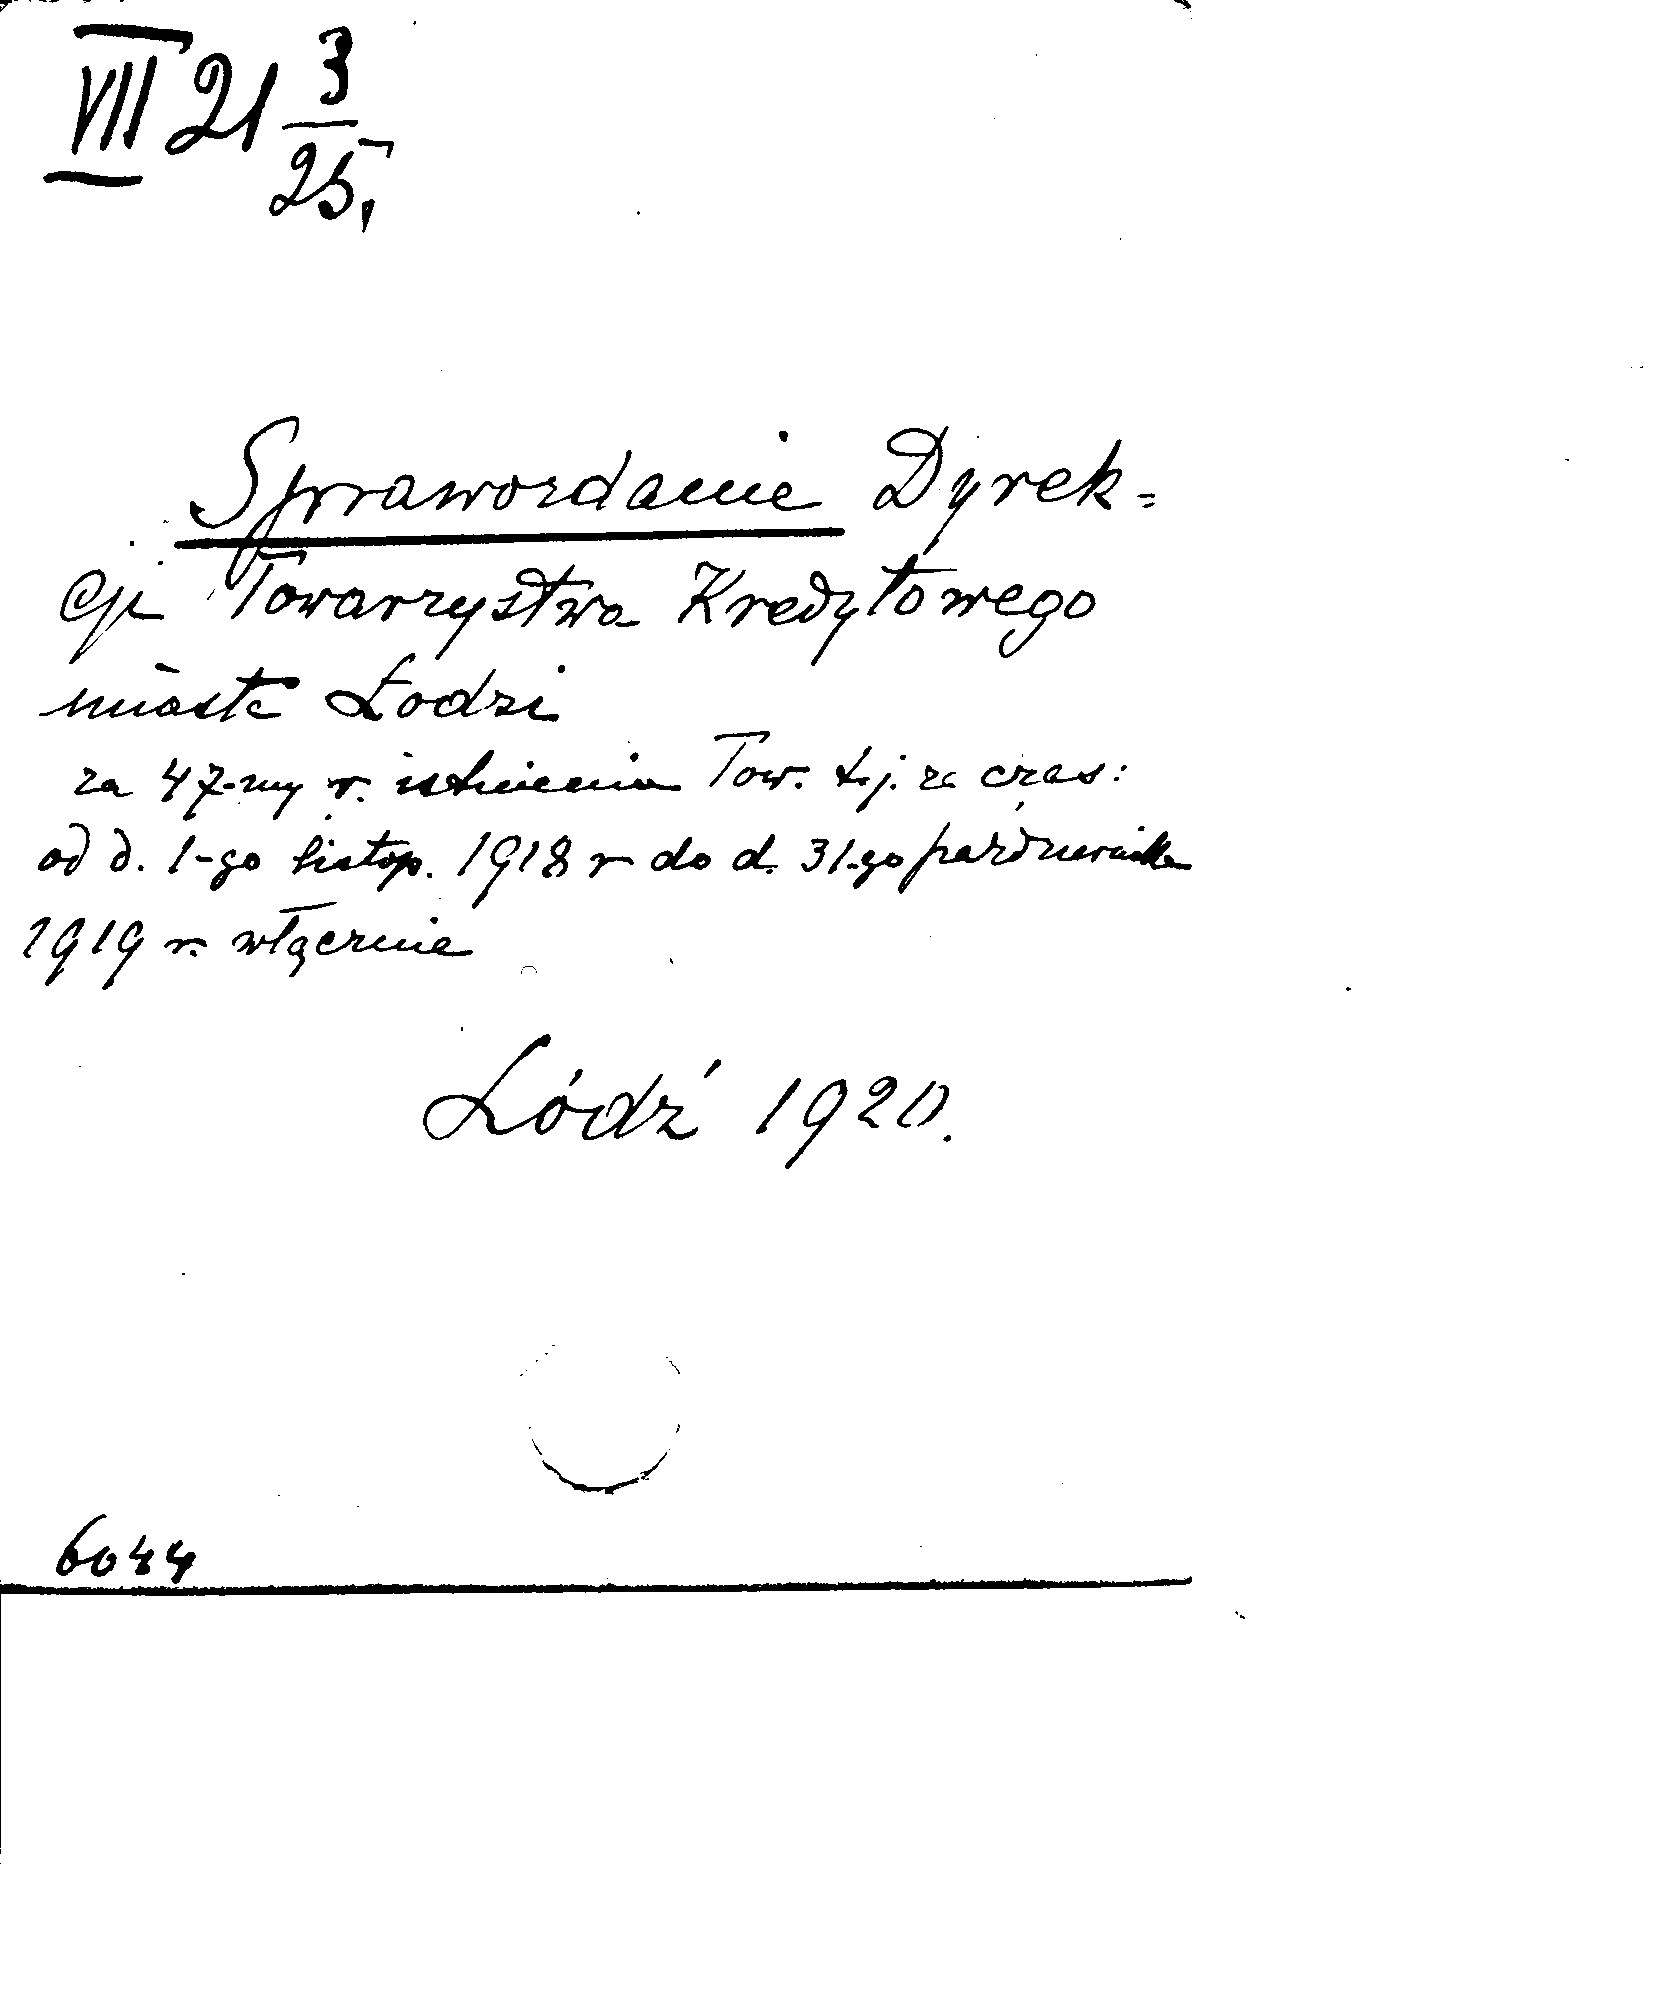 VII 21 3/25,
Sprawozdanie Dyrek=
cji Towarzystwa Kredytowego
miasta Łodzi
za 47-my r. istnienia Tow. t.j. za czas:
od d. 1-go listop. 1918 r do d. 31-go października
1919 r. włącznie
Łódź 1920.
6044